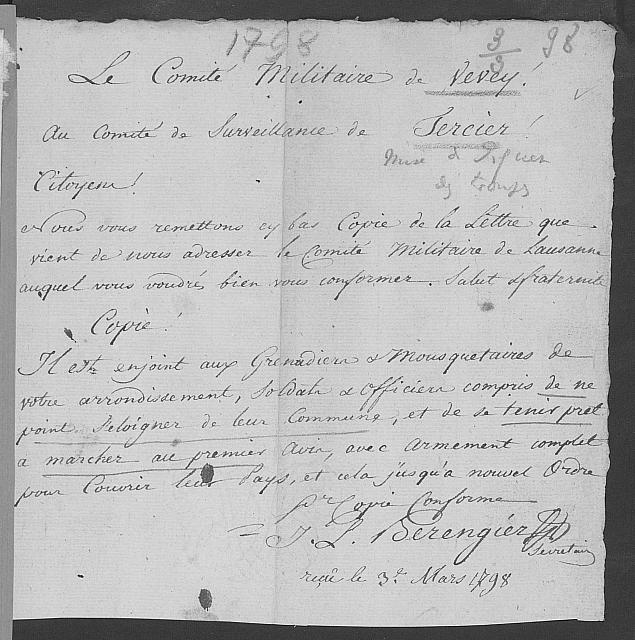 1798 3/3 98
Le Comité Militaire de Vevey!
Au Comité de Surveillance de Tercier!
Mise de Piquet
des troupes
Citoyens!
Nous vous remettons cy bas Copie de la Lettre que
vient de nous adresser le Comité Militaire de Lausanne
auquel vous voudrés bien vous conformer. Salut & fraternité
Copie!
Il est enjoint aux Grenadiers & Mousquetaires de
votre arrondissement, Soldats & Officiers compris de ne
point S'eloigner de leur Commune, et de se tenir pret
a marcher au premier Avis, avec armement complet
pour Couvrir leur Pays, et cela jusqu'a nouvel Ordre
pr Copie Conforme
J. L. Berengier
Secretaire
reçue le 3e Mars 1798